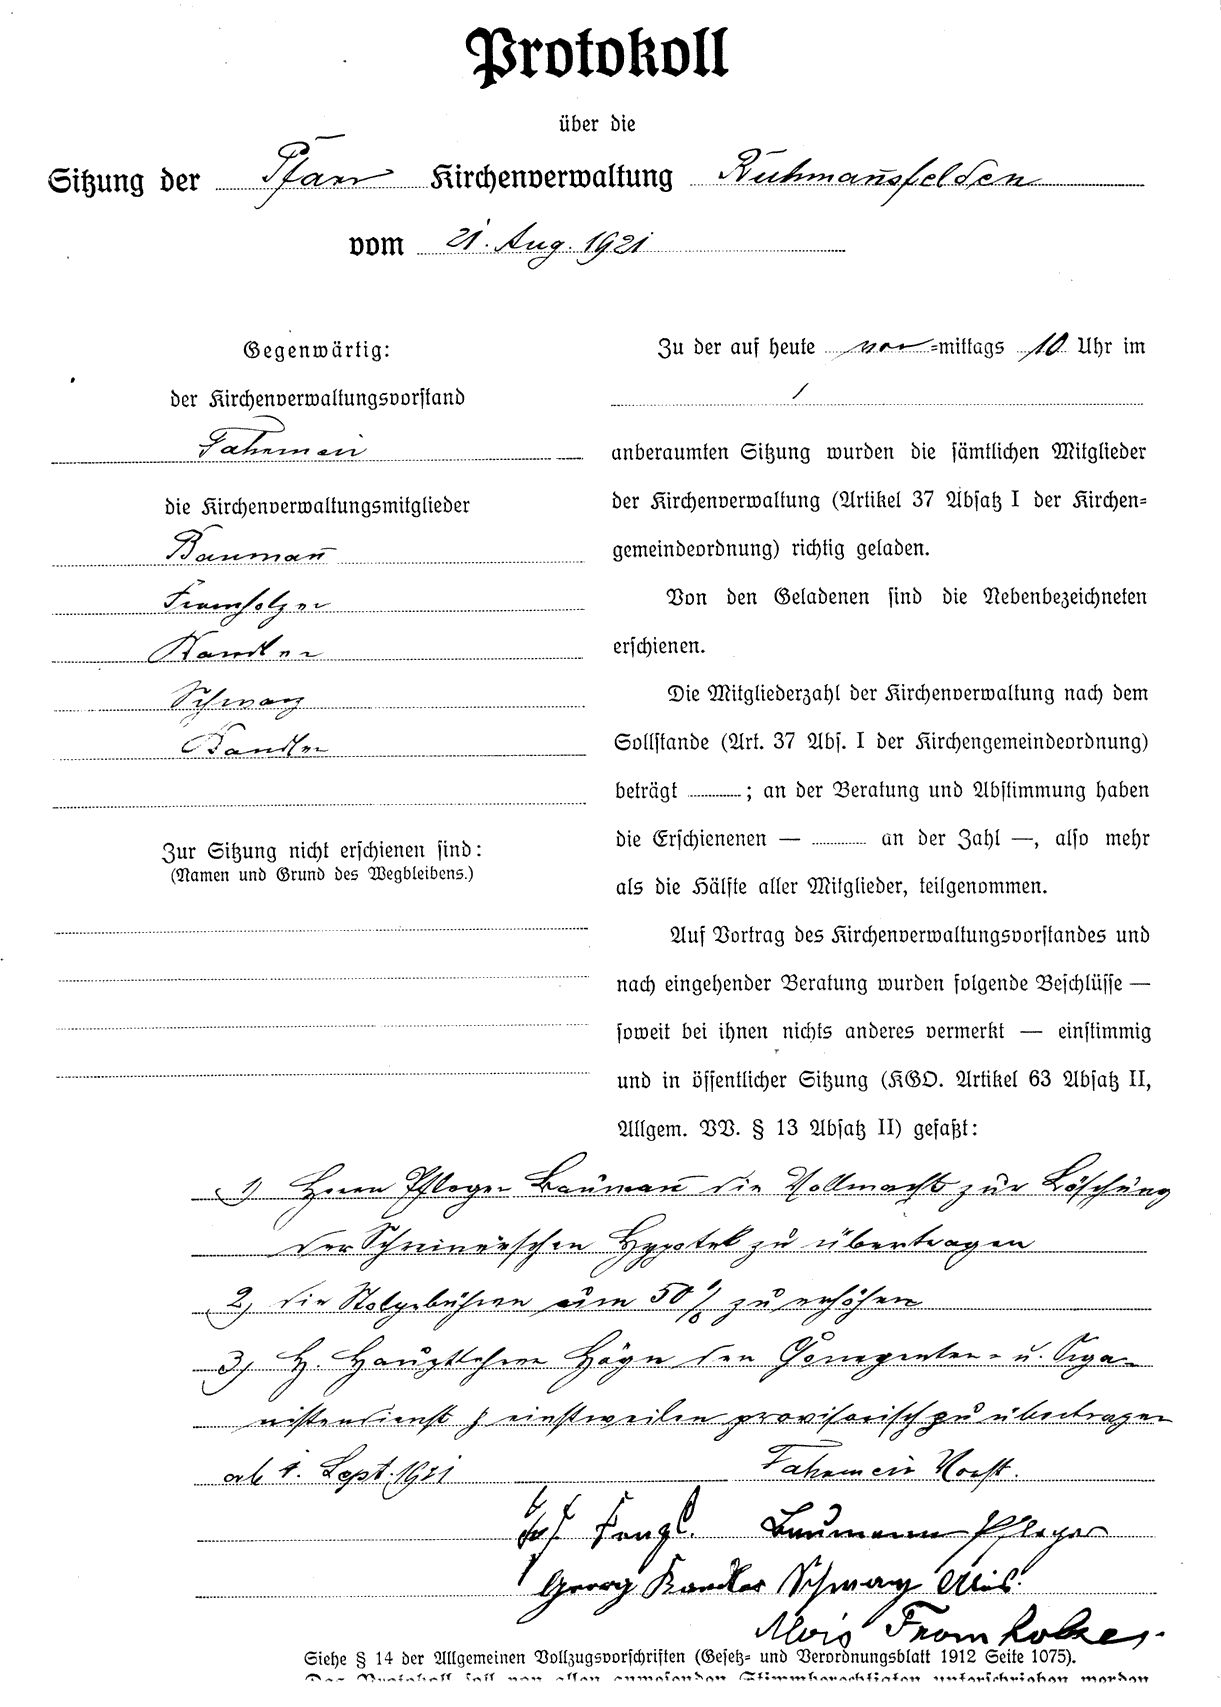 Protokoll
über die
Sitzung der Pfarr Kirchenverwaltung Ruhmannsfelden
vom 21. Aug. 1921
Gegenwärtig:
der Kirchenverwaltungsvorstand
Fahrmeier
die Kirchenverwaltungsmitglieder
Baumann
Fromholzer
Kandler
Schwarz
Kandler
Zur Sitzung nicht erschienen sind:
(Namen und Grund des Wegbleibens.)
Zu der auf heute vor=mittags 10 Uhr im
anberaumten Sitzung wurden die sämtlichen Mitglieder
der Kirchenverwaltung (Artikel 37 Absatz I der Kirchen=
gemeindeordnung) richtig geladen.
Von den Geladenen sind die Nebenbezeichneten
erschienen.
Die Mitgliederzahl der Kirchenverwaltung nach dem
Sollstande (Art. 37 Abs. I der Kirchengemeindeordnung)
beträgt ; an der Beratung und Abstimmung haben
die Erschienenen — an der Zahl —, also mehr
als die Hälfte aller Mitglieder, teilgenommen.
Auf Vortrag des Kirchenverwaltungsvorstandes und
nach eingehender Beratung wurden folgende Beschlüsse —
soweit bei ihnen nichts anderes vermerkt — einstimmig
und in öffentlicher Sitzung (KGO. Artikel 63 Absatz II,
Allgem. VV. § 13 Absatz II) gefaßt:
1) Herrn Pfleger Baumann die Vollmacht zur Löschung
der Hypotek zu übertragen
2) die Stolgebühren um 50 % zu erhöhen
3) H. Hauptlehrer Högn den Chorregenten- u. Orga-
nistendienst einstweilen provisorisch zu übertragen
ab 1. Sept. 1921 Fahrmeier Vorst.
Baumann Pfleger
Georg Kandler Schwarz Alois
Alois Fromholzer
Siehe § 14 der Allgemeinen Vollzugsvorschriften (Gesetz= und Verordnungsblatt 1912 Seite 1075).
Das Protokoll soll von allen anwesenden Stimmberechtigten unterschrieben werden